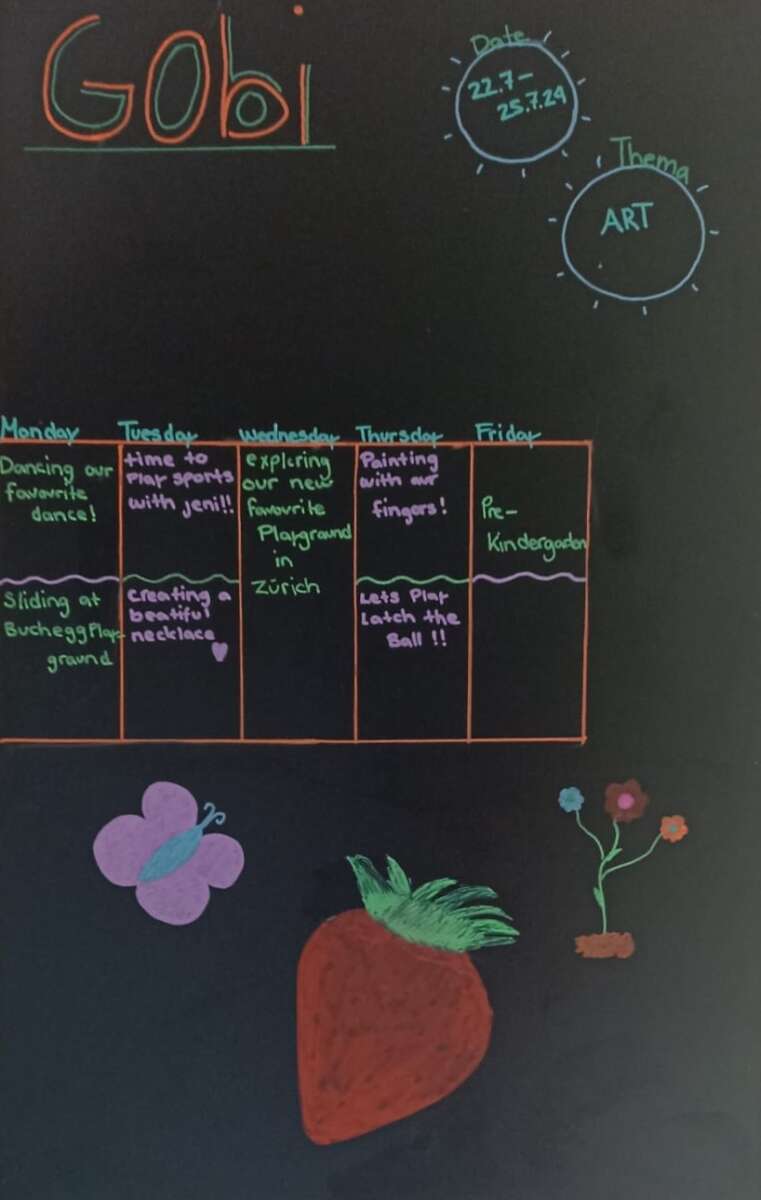 Gobi
Date
22.7-
25.7.24
Thema
ART
Monday
Tuesday
Wednesday
Thursday
Friday
Dancing our
favourite
dance!
time to
Play sports
with jeni!!
exploring
our new
favourite
Playground
in
Zürich
Painting
with our
fingers!
Pre-
Kindergarden
Sliding at
BucheggPlay-
ground
creating a
beatiful
necklace
Lets Play
Latch the
Ball !!